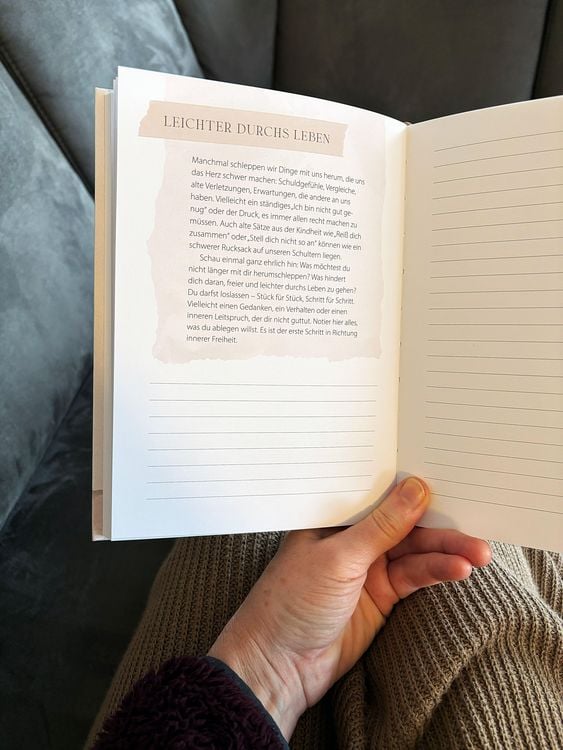 LEICHTER DURCHS LEBEN
Manchmal schleppen wir Dinge mit uns herum, die uns
das Herz schwer machen: Schuldgefühle, Vergleiche,
alte Verletzungen, Erwartungen, die andere an uns
haben. Vielleicht ein ständiges „Ich bin nicht gut ge-
nug“ oder der Druck, es immer allen recht machen zu
müssen. Auch alte Sätze aus der Kindheit wie „Reiß dich
zusammen“ oder „Stell dich nicht so an“ können wie ein
schwerer Rucksack auf unseren Schultern liegen.
Schau einmal ganz ehrlich hin: Was möchtest du
nicht länger mit dir herumschleppen? Was hindert
dich daran, freier und leichter durchs Leben zu gehen?
Du darfst loslassen – Stück für Stück, Schritt für Schritt.
Vielleicht einen Gedanken, ein Verhalten oder einen
inneren Leitspruch, der dir nicht guttut. Notier hier alles,
was du ablegen willst. Es ist der erste Schritt in Richtung
innerer Freiheit.